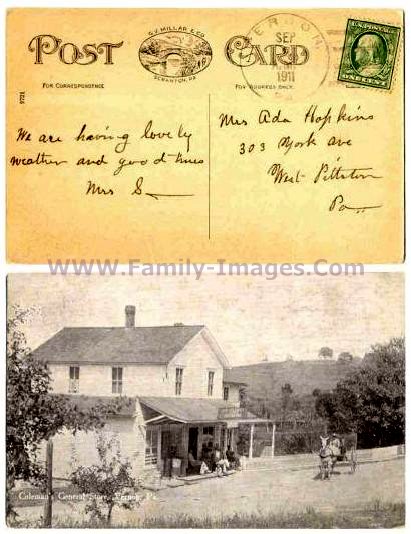 POST CARD
G.F. MILLAR & CO.
SCRANTON, PA.
FOR CORRESPONDENCE
FOR ADDRESS ONLY.
VERNON,
SEP
1911
U.S. POSTAGE
ONE CENT
9721
We are having lovely
weather and good times
Mrs S
Mrs Ada Hopkins
303 York ave
West Pittston
Pa
www.Family-Images.Com
Coleman's General Store, Vernon, Pa.